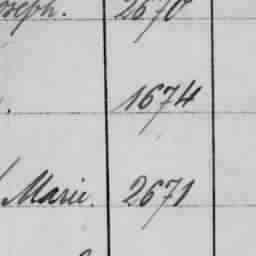 oseph. 2670
. 1674
Marie. 2671